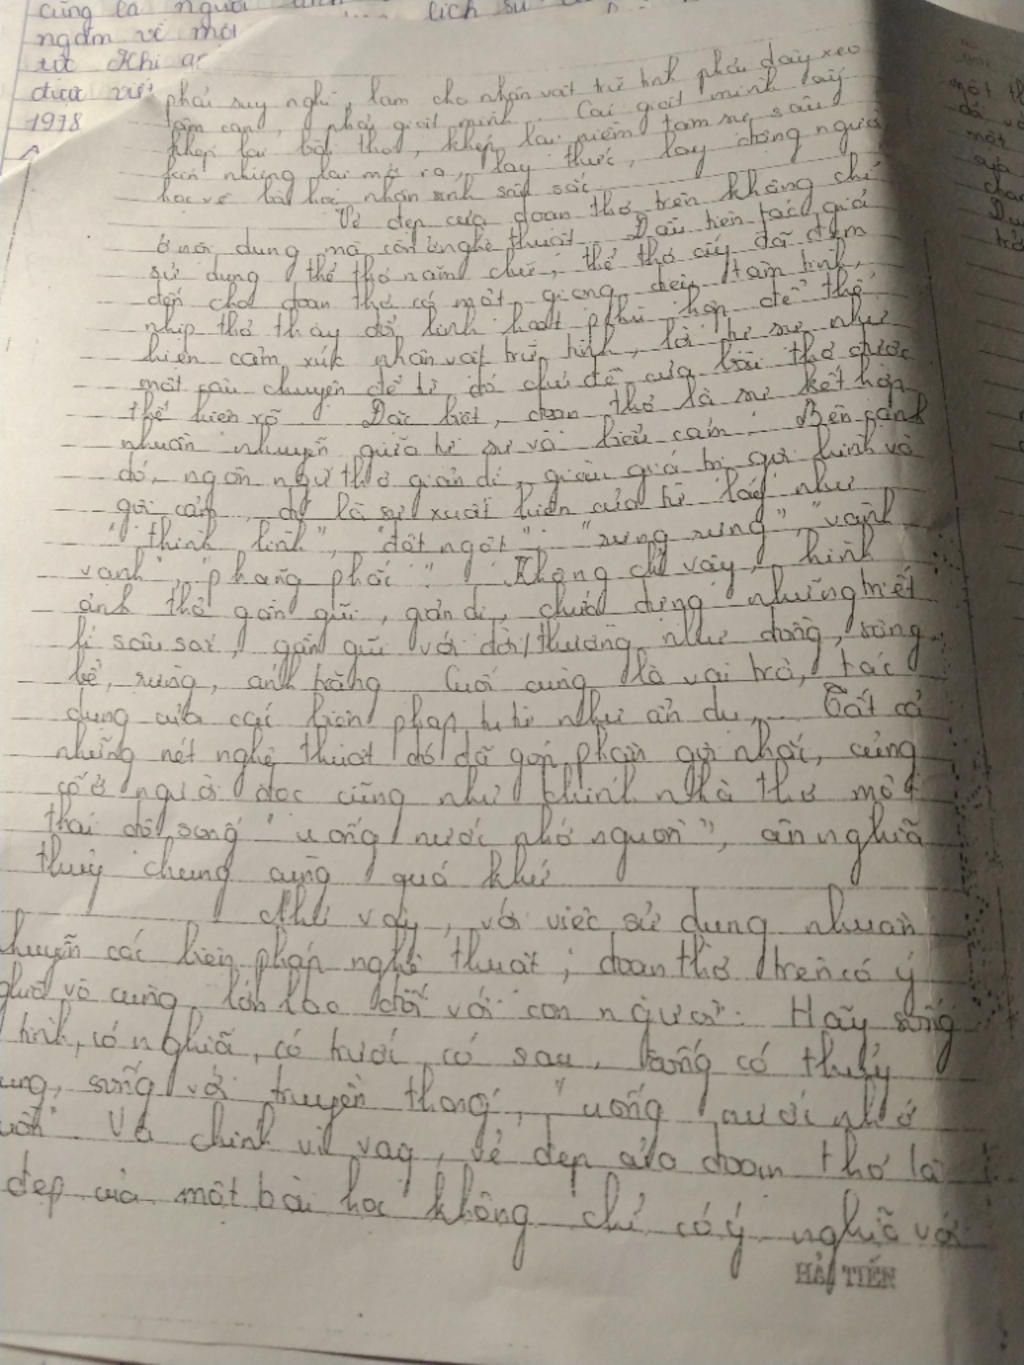 cũng là người
lịch sử
ngắm về một
tử Khi
được
1978
phải suy nghĩ, làm cho nhân vật trữ tình phải day xéo
tâm can, phải giật mình. Cái giật mình ấy
khép lại bài thơ, khép lại niềm tâm sự sâu
kín nhưng lại mở ra, lay thức, lay động người
học về bài học nhân sinh sâu sắc
Vẻ đẹp của đoạn thơ trên không chỉ
ở nội dung mà còn ở nghệ thuật. Đầu tiên tác giả
sử dụng thể thơ năm chữ, thể thơ ấy đã đem
đến cho đoạn thơ có một giọng điệu tâm tình,
nhịp thơ thay đổi linh hoạt phù hợp để thể
hiện cảm xúc nhân vật trữ tình, lời tự sự như
một câu chuyện để từ đó chủ đề của bài thơ được
thể hiện rõ. Đặc biệt, đoạn thơ là sự kết hợp
nhuần nhuyễn giữa tự sự và biểu cảm. Bên cạnh
đó, ngôn ngữ thơ giản dị, giàu giá trị gợi hình và
gợi cảm, đó là sự xuất hiện của từ láy như
"thình lình", "đột ngột", "rưng rưng", "vành
vạnh", "phăng phắc". Không chỉ vậy, hình
ảnh thơ gần gũi, giản dị, chứa đựng những triết
lí sâu sắc, gần gũi với đời thường như đồng, sông
bể, rừng, ánh trăng. Cuối cùng là vai trò, tác
dụng của các biện pháp tu từ như ẩn dụ,... Tất cả
những nét nghệ thuật đó đã góp phần gợi nhắc, củng
cố ở người đọc cũng như chính nhà thơ một
thái độ sống "uống nước nhớ nguồn", ân nghĩa
thuỷ chung cùng quá khứ
Như vậy, với việc sử dụng nhuần
nhuyễn các biện pháp nghệ thuật, đoạn thơ trên có ý
nghĩa vô cùng lớn lao đối với con người. Hãy sống
tình, có nghĩa, có trước có sau, sống có thuỷ
ung, sống với truyền thống, "uống nước nhớ
uồn". Và chính vì vậy, vẻ đẹp của đoạn thơ là
đẹp của một bài học không chỉ có ý nghĩa với
HẢI TIẾN